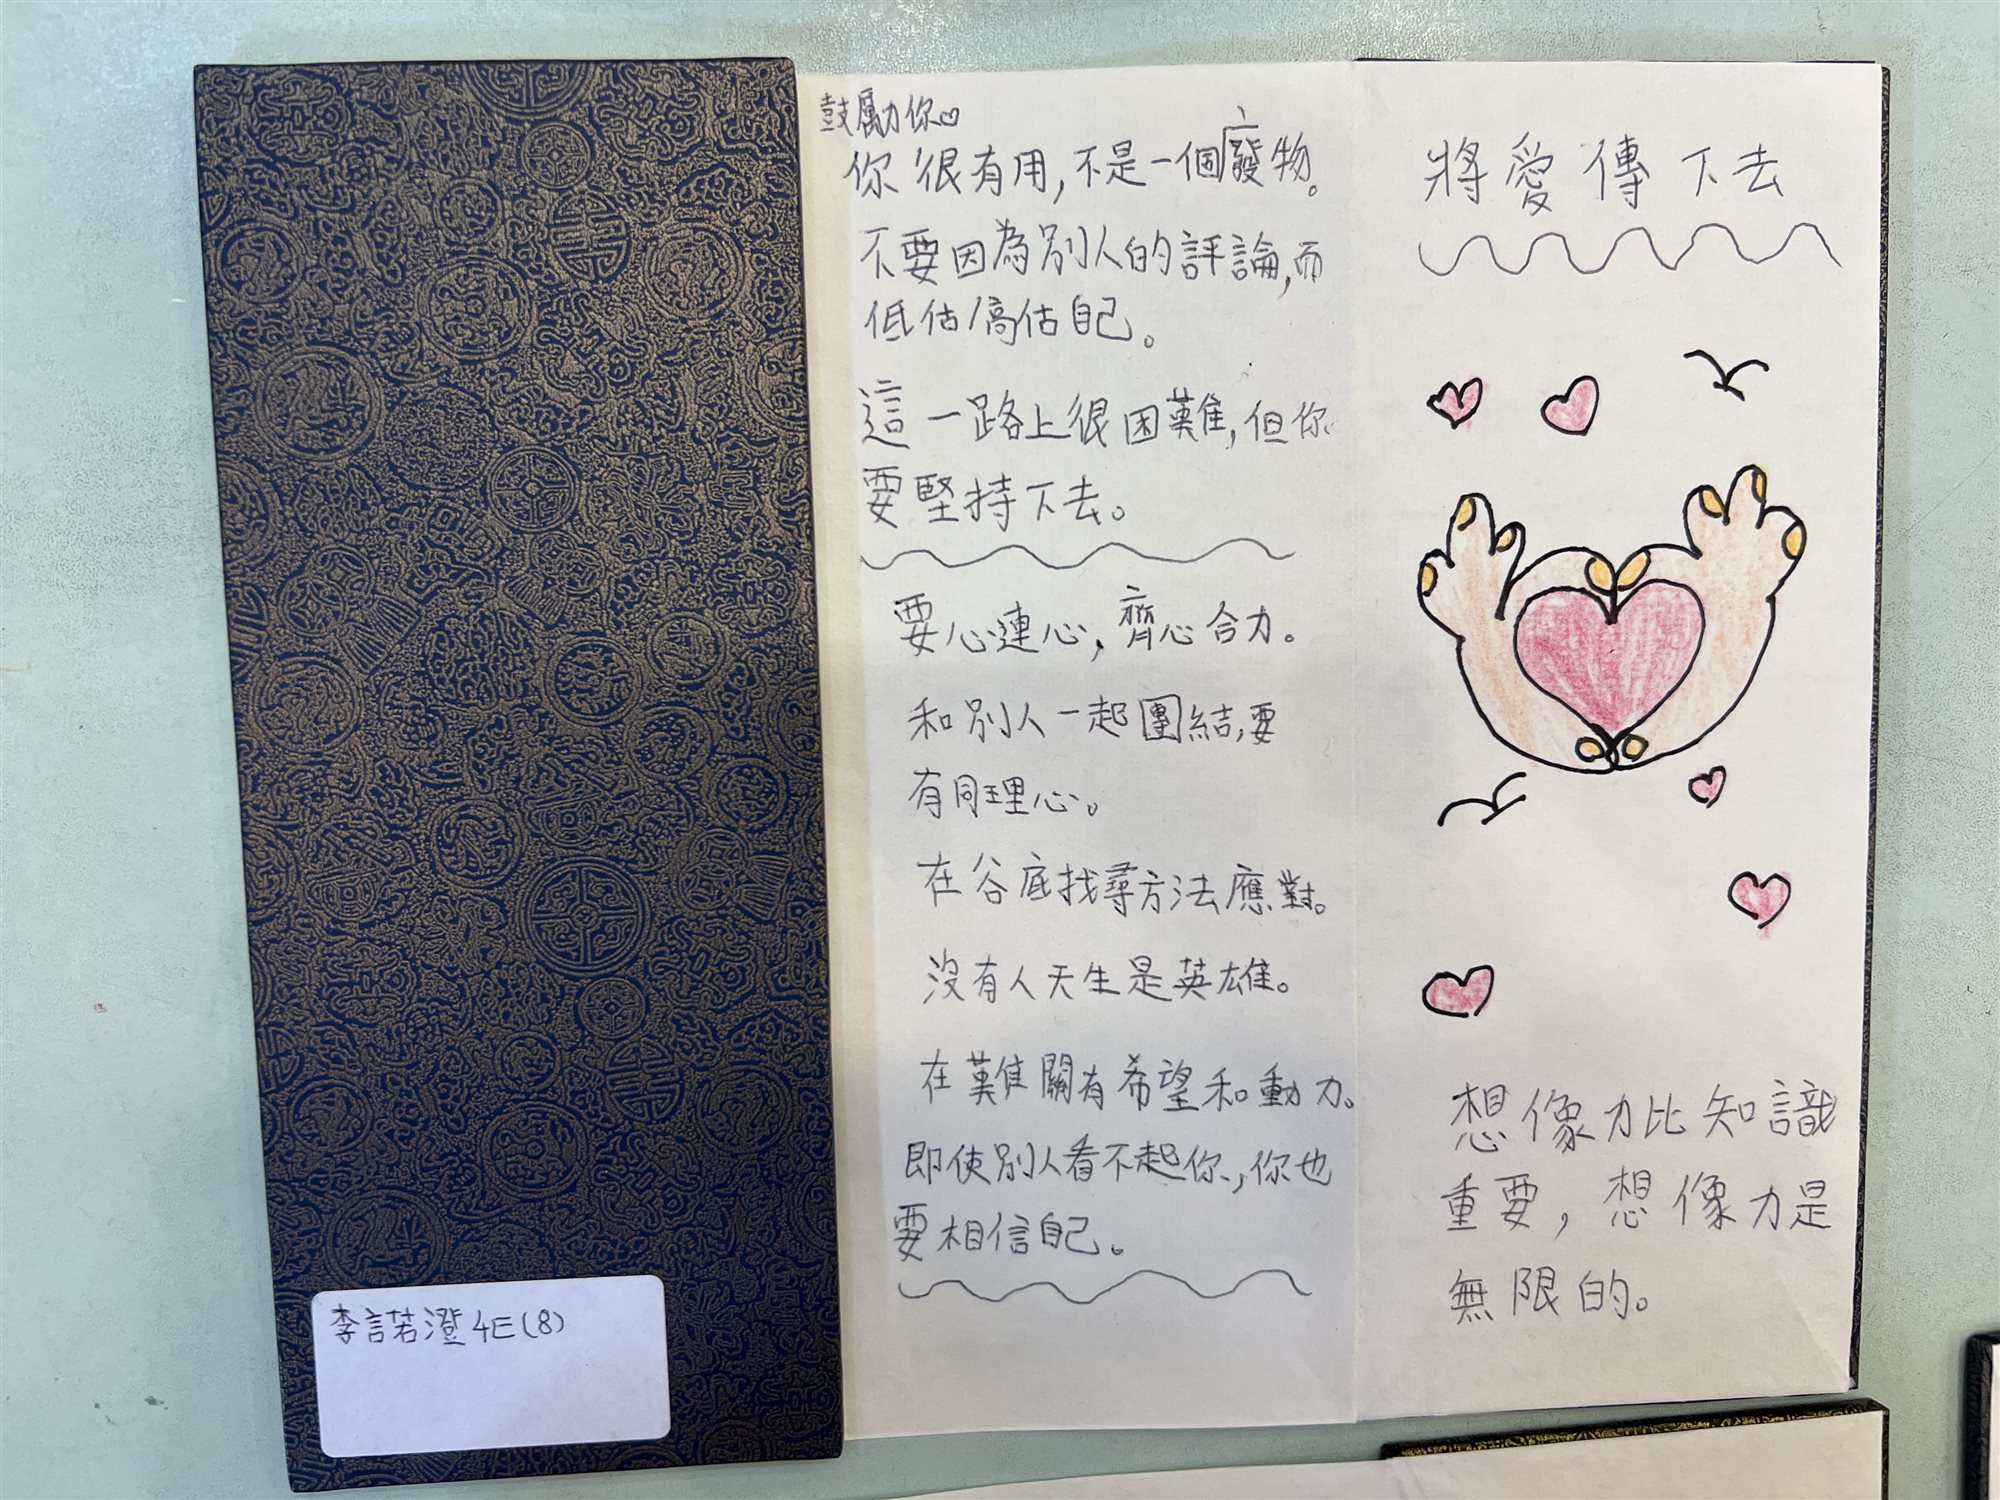 鼓勵你♡
你很有用,不是一個廢物。
不要因為別人的評論,而
低估/高估自己。
這一路上很困難,但你
要堅持下去。
要心連心,齊心合力。
和別人一起團結,要
有同理心。
在谷底找尋方法應對。
沒有人天生是英雄。
在難關有希望和動力。
即使別人看不起你,你也
要相信自己。
將愛傳下去
想像力比知識
重要,想像力是
無限的。
李言若澄 4E(8)